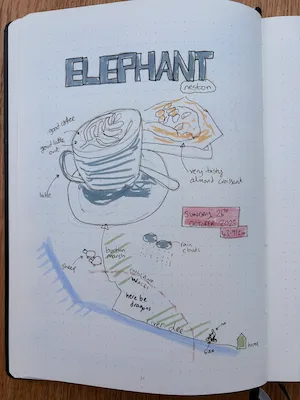 ELEPHANT
neston
good coffee
good latte
art
latte
very tasty
almond croissant
SUNDAY 26TH
OCTOBER 2025
rain
clouds
burton
marsh
sheep
here be
dragons
hotel